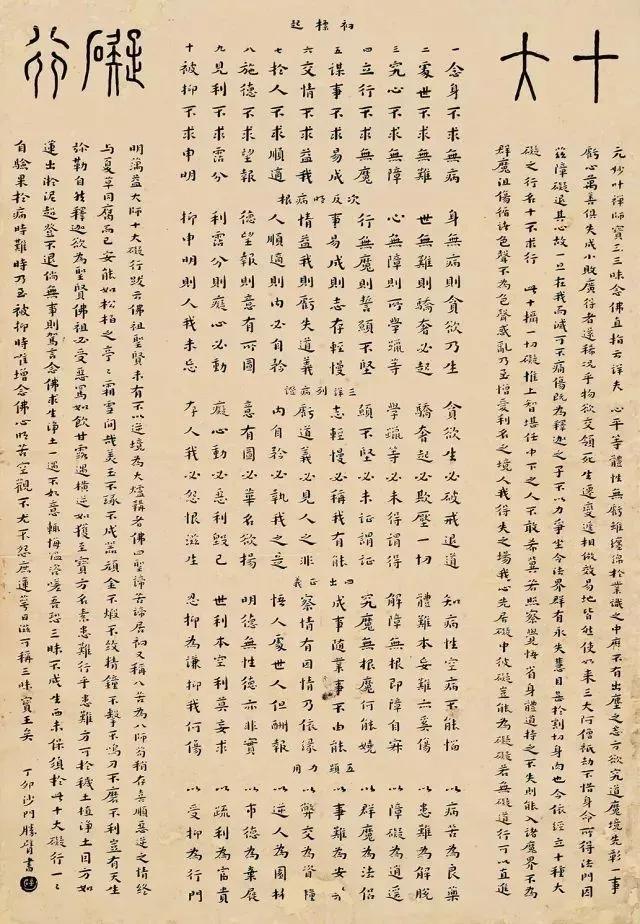 十大
礙行
元妙叶禪師寶王三昧念佛直指云詳夫 心平等體性無虧雖纏綿於業識之中靡不有出塵之志方欲魔境先彰一事
虧心萬善俱失成小敗廣得者還稀況乎物欲交傾死生遷變遞相倣效易地皆然使以來三大阿僧祇劫不惜身命所得法門因
茲障礙退其心故一旦在我而滅可不痛傷既為釋迦之子不以力爭坐令法界群有永失慧目甚於割切身肉也今依經立十種大
礙之行名十不求行 此十種一切礙推上智堪任中下之人不敢希冀若照察覺悟省身體道持之不失則能入諸魔界不為
群魔退轉循諸色聲不為色聲惑亂乃至憎愛利名之境人我得失之場我心先居礙中彼礙豈能為礙礙若無礙道行可以直進
初標起
一念身不求無病
二處世不求無難
三究心不求無障
四立行不求無魔
五謀事不求易成
六交情不求益我
七於人不求順適
八施德不求望報
九見利不求霑分
十被抑不求申明
次反明病根
身無病則貪欲乃生
世無難則驕奢必起
心無障則所學躐等
行無魔則誓願不堅
事易成則志存輕慢
情益我則虧失道義
人順適則內心自矜
德望報則意有所圖
利霑分則癡心必動
抑申明則人我未忘
三詳列病證
貪欲生必破戒退道
驕奢起必欺壓一切
學躐等必未得謂得
願不堅必未證謂證
志輕慢必稱我有能
虧道義必見人之非
內自矜必執我之是
意有圖必華名欲揚
癡心動必惡利毀己
存人我必怨恨滋生
四出正義
知病性空病不能惱
體難本妄難亦奚傷
解障無根即障自寂
究魔無根魔何能嬈
成事隨業事不由能
察情有因情乃依緣
悟人處世人但酬報
明德無性德亦非實
世利本空利莫妄求
忍抑為謙抑我何傷
五顯力用
以病苦為良藥
以患難為解脫
以障礙為逍遙
以群魔為法侶
以事難為安樂
以弊交為資糧
以逆人為園林
以市德為棄屣
以疏利為富貴
以受抑為行門
明蕅益大師十大礙行跋云佛祖聖賢未有不以逆境為大爐鞴者佛四聖諦苦諦居初又稱八苦為八師苟稍存喜順惡逆之情終
與夏草同腐而已安能如松柏之亭亭霜雪間哉美玉不琢不成器頑金不煅不致精鐘不擊不鳴刀不磨不利豈有天生
彌勒自然釋迦欲為聖賢佛祖必受惡罵如飲甘露遇橫逆如獲至寶方名素患難行乎患難方可於穢土植淨土因方如
蓮出淤泥超登不退倘無事則駕言念佛求生淨土一遇不如意輒悔咨嗟吾恐三昧不成生西未保須於此十大礙行一一
自驗果於病時難時乃至被抑時唯增念佛心明苦空觀不尤不怨庶蓮萼日滋可稱三昧寶王矣
丁卯沙門勝臂書